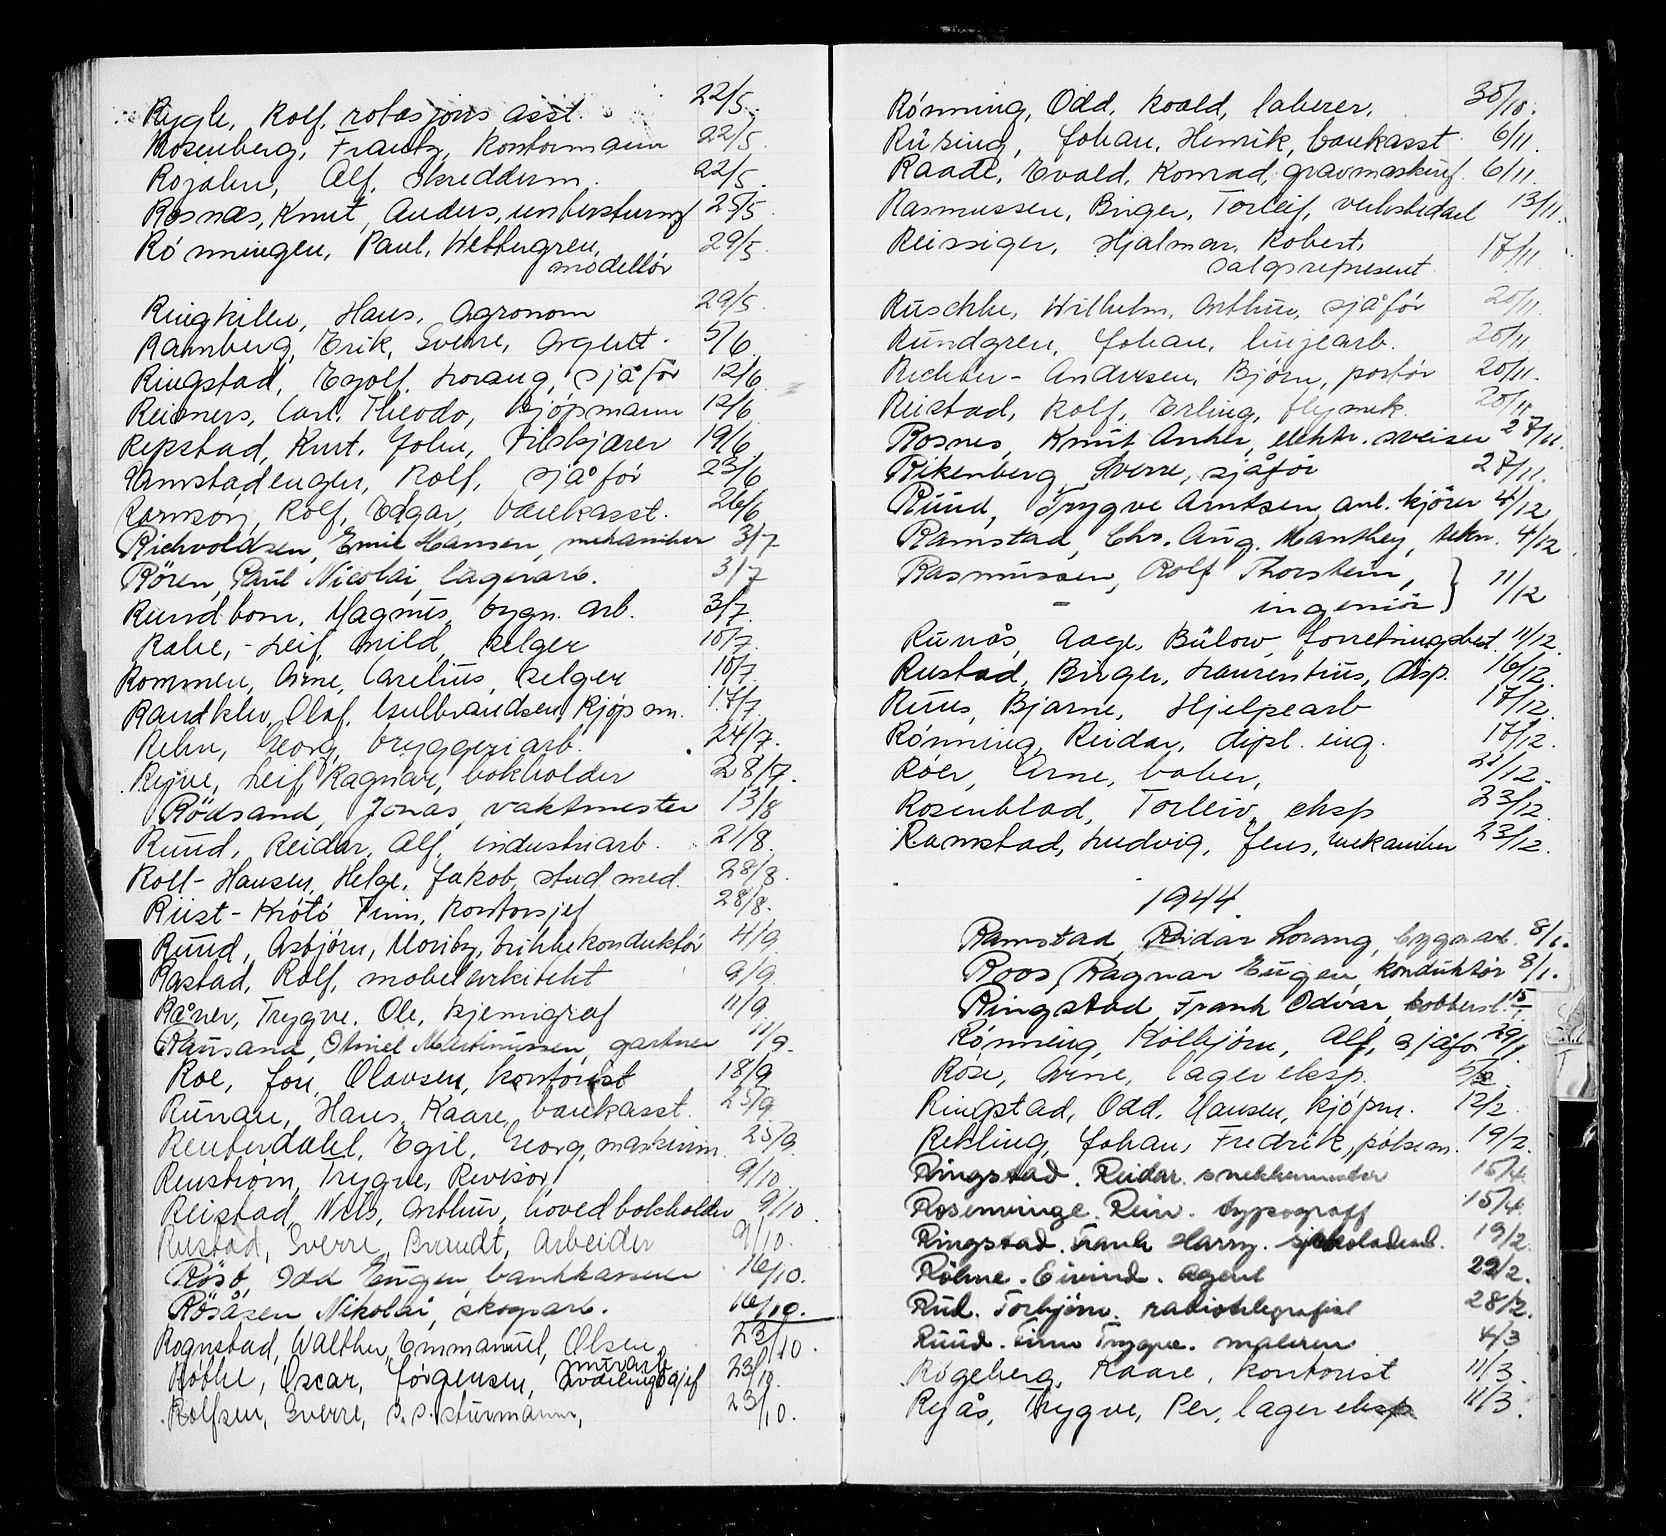 Rygh, Rolf, rotasjons asst. 22/5.
Rosenberg, Frantz, Kontormann 22/5.
Rozahn, Alf, Skreddum. 22/5.
Rosnæs, Knut, Anders, 25/5
Rønningen, Paul, Wettergren, 29/5
modellør
Ringkilen, Hans, Agronom 29/5.
Ramberg, Erik, Sverre, Agent. 5/6.
Ringstad, Egolf, Lorang, sjåfør 12/6.
Reiners, Carl, Theodo, kjøpmann 12/6
Repstad, Knut, John, 19/6
Ramstadengen, Rolf, sjåfør 23/6
Rolf, Edgar, bankasst. 26/6
Richvoldsen, Emil Hansen, mekaniker 3/7
Røren, Paul Nicolai, lagerarb. 3/7
Rundbom, Magnus, bygn. arb. 3/7.
Rabe, - Leif, selger 10/7.
Rommen, Arne, Carelius, selger 10/7.
Randklev, Olaf, Gulbrandsen, Kjøpm. 17/7
Rehn, Georg, bryggeriarb. 24/7.
Ryve, Leif, Ragnar, bokholder 28/7.
Rødsand, Jonas, vaktmester 13/8
Ruud, Reidar, Alf, industriarb. 21/8.
Roll-Hansen, Helge, Jakob, stud med. 28/8.
Riist-Krötö Finn, Kontorsjef 28/8.
Ruud, Asbjørn, Moriby, trikkekonduktør 4/9
Rastad, Rolf, møbelarkitekt 9/9.
Råner, Trygve, Ole, kjemigraf 11/9.
Rausand, Otniel Martinussen, gartner 11/9.
Roe, Jon, Olavsen, kontorist 18/9
Runau, Hans, Kaare, bankasst. 25/9
Reuterdahl, Egil, Georg, 25/9
Renstrøm, Trygve, Revisor, 9/10.
Reistad, Nils, Arthur, hovedbokholder 9/10.
Rustad, Sverre, Brandt, Arbeider 9/10.
Røsb, Odd Eugen, bankkasserer 16/10.
Røsåsen Nikolai, skogsarb. 16/10.
Rognstad, Walther, Emmanuel, Olsen, 23/10.
murarb.
Røthe, Oscar, Jørgensen, avdelingssjef 23/10
Rolfsen, Sverre, s.s. sturmann, 23/10.
Rønning, Odd, Roald, laborer, 30/10.
Rüsing, Johan, Henrik, bankasst. 6/11.
Raade, Evald, Konrad, gravmaskinf. 6/11.
Rasmussen, Birger, Torleif, verkstedarb 13/11.
Reissiger, Hjalmar, Robert, 17/11
salgsrepresent.
Ruschke, Wilhelm, Arthur, sjåfør 20/11.
Rundgren, Johan, linjearb. 20/11
Richter-Andersen, Bjørn, portør 20/11.
Reistad, Rolf, Erling, flymek. 20/11
Rosnes, Knut Anker, elektr. sveiser 27/11.
Rikenberg, Sverre, sjåför 27/11.
Ruud, Trygve Arntsen, anl. kjører 4/12
Ramstad, Chr. Aug. Manthey, tekn. 4/12
Rasmussen, Rolf Thorstein, } 11/12
- ingeniør
Runås, Aage, Bülow, forretningsbest. 11/12.
Rustad, Birger, Laurentius, disp. 16/12.
Ruus, Bjarne, Hjelpearb 17/12.
Rønning, Reidar, dipl. ing. 17/12.
Röer, Arne, baker, 21/12.
Rosenblad, Torleiv, eksp 23/12.
Ramstad, Ludvig, Jens, mekaniker 23/12.
1944.
Ramstad, Reidar Lorang, bygn. arb. 8/1.
Roos, Ragnar Eugen, konduktør 8/1.
Ringstad, Frank Odvar, kobbersl. 15/1.
Rønning, Kolbjørn, Alf, sjåfør 29/1.
Röse, Arne, lagereksp.
Ringstad, Odd, Hansen, kjøpm. 12/2.
Rekling, Johan, Fredrik, pølsem. 19/2.
Ringstad. Reidar. snekkermester 15/4
Rosenvinge. Rein. typograff 15/4
Ringstad. Frank Harry. sjokoladearb. 19/2.
Röhne. Eivind. Agent 22/2.
Rud. Torbjörn. radiotelegrafist 28/2.
Ruud. Finn Trygve. maleren 4/3
Rögeberg, Kaare, kontorist 11/3.
Ryås, Trygve, Per, lagereksp 11/3.